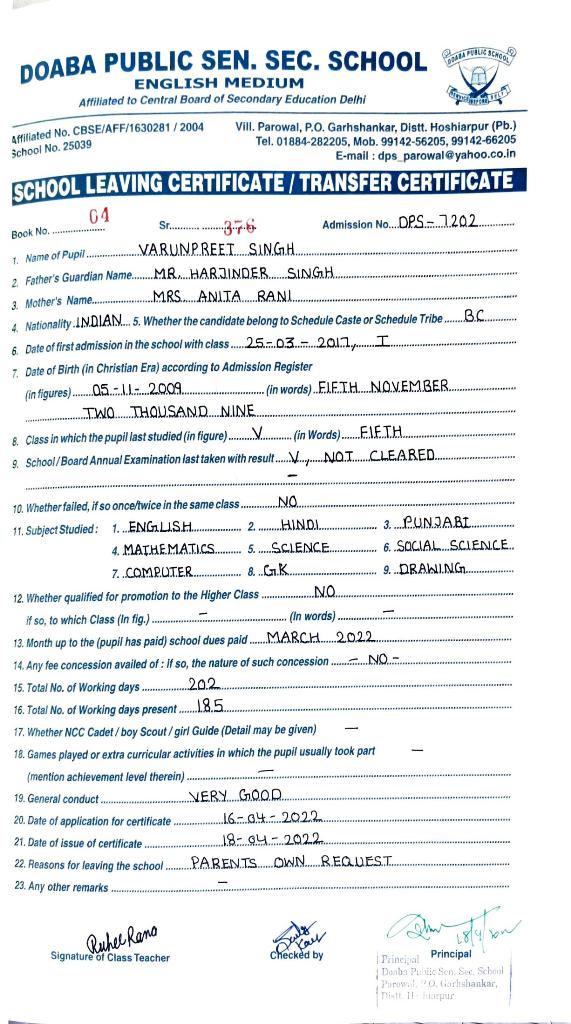 DOABA PUBLIC SEN. SEC. SCHOOL
DOABA PUBLIC SCHOOL
ENGLISH MEDIUM
Affiliated to Central Board of Secondary Education Delhi
Affiliated No. CBSE/AFF/1630281 / 2004
School No. 25039
Vill. Parowal, P.O. Garhshankar, Distt. Hoshiarpur (Pb.)
Tel. 01884-282205, Mob. 99142-56205, 99142-66205
E-mail : dps_parowal@yahoo.co.in
SCHOOL LEAVING CERTIFICATE / TRANSFER CERTIFICATE
Book No. 04 Sr. 376 Admission No. DPS-7202
1. Name of Pupil VARUNPREET SINGH
2. Father's Guardian Name MR. HARJINDER SINGH
3. Mother's Name MRS. ANITA RANI
4. Nationality INDIAN 5. Whether the candidate belong to Schedule Caste or Schedule Tribe BC
6. Date of first admission in the school with class 25-03-2017, I
7. Date of Birth (in Christian Era) according to Admission Register
(in figures) 05-11-2009 (in words) FIFTH NOVEMBER
TWO THOUSAND NINE
8. Class in which the pupil last studied (in figure) V (in Words) FIFTH
9. School / Board Annual Examination last taken with result V, NOT CLEARED
–
10. Whether failed, if so once/twice in the same class NO
11. Subject Studied : 1. ENGLISH 2. HINDI 3. PUNJABI
4. MATHEMATICS 5. SCIENCE 6. SOCIAL SCIENCE
7. COMPUTER 8. GK 9. DRAWING
12. Whether qualified for promotion to the Higher Class NO
if so, to which Class (In fig.) – (In words) –
13. Month up to the (pupil has paid) school dues paid MARCH 2022
14. Any fee concession availed of : if so, the nature of such concession – NO –
15. Total No. of Working days 202
16. Total No. of Working days present 185
17. Whether NCC Cadet / boy Scout / girl Guide (Detail may be given) –
18. Games played or extra curricular activities in which the pupil usually took part –
(mention achievement level therein) –
19. General conduct VERY GOOD
20. Date of application for certificate 16-04-2022
21. Date of issue of certificate 18-04-2022
22. Reasons for leaving the school PARENTS OWN REQUEST
23. Any other remarks –
Ruhel Rana
Signature of Class Teacher
Checked by
Principal
Principal
Doaba Public Sen. Sec. School
Parowal, P.O. Garhshankar,
Distt. Hoshiarpur